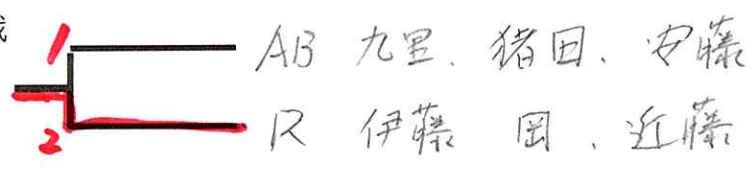 1 AB 九里、猪田、安藤
2 R 伊藤 岡、近藤